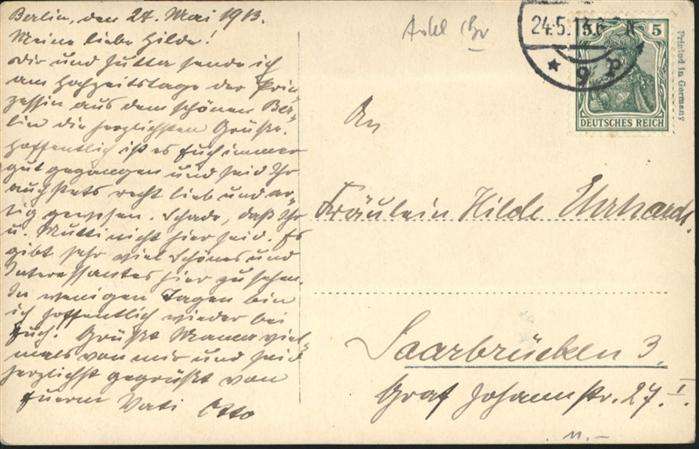 Berlin, den 24. Mai 1913.
Meine liebe Hilde!
Dir und Jutta sende ich
am Hochzeitstage der Prin-
zessin aus dem schönen Ber-
lin die herzlichsten Grüße.
Hoffentlich ist es Euch immer
gut gegangen und seid Ihr
auch stets recht lieb und ar-
tig gewesen. Schade, daß Ihr
u. Mutti nicht hier seid. Es
gibt sehr viel Schönes und
Interessantes hier zu sehen.
In wenigen Tagen bin
ich hoffentlich wieder bei
Euch. Grüßt Mama viel-
mals von mir und seid
herzlichst gegrüßt von
Euerm Vati Otto
24.5.13.6-7N
* 9 P
5
DEUTSCHES REICH
Printed in Germany
An
Fräulein Hilde Ehrhardt.
Saarbrücken 3.
Graf Johannstr. 27. I.